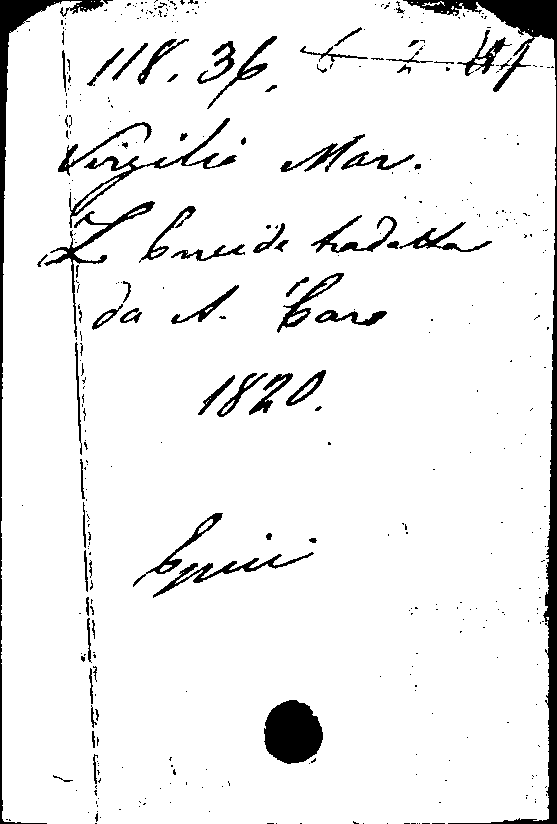 118. 36. 6 2.
Virgilio Mar.
L Eneide tradotta
da A. Caro
1820.
Epici